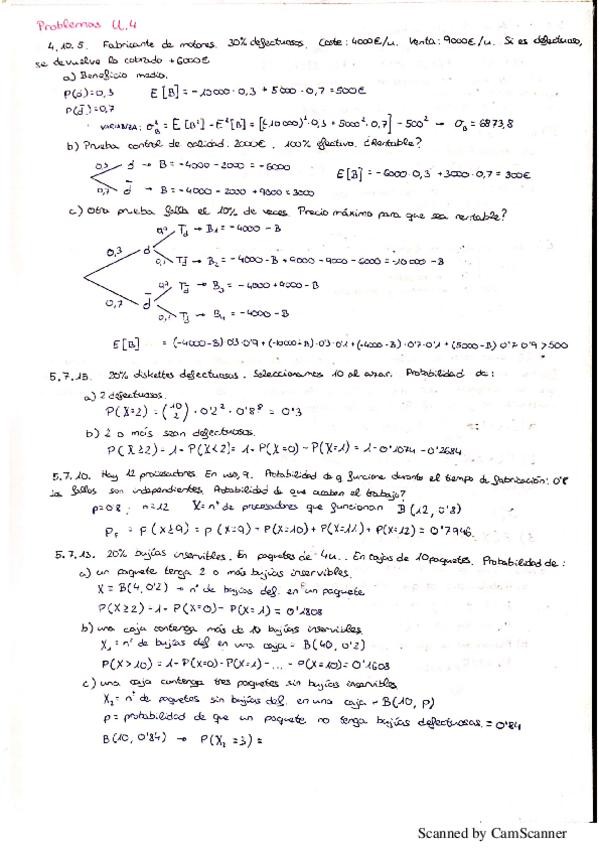 Problemas U.4
4.10.5. Fabricante de motores. 30% defectuosos. Coste: 4000€/u. Venta: 9000€/u. Si es defectuoso,
se devuelve lo cobrado + 6000€
a) Beneficio medio.
P(d)=0,3 E[B] = -10000·0,3 + 5000·0,7 = 500€
P(d̄)=0,7
VARIANZA: σ²_B = E[B²] - E²[B] = [(-10000)²·0,3 + 5000²·0,7] - 500² → σ_B = 6873,8
b) Prueba control de calidad. 2000€. 100% efectivo. ¿Rentable?
0,3 d → B = -4000 - 2000 = -6000
E[B] = -6000·0,3 + 3000·0,7 = 300€
0,7 d̄ → B = -4000 - 2000 + 9000 = 3000
c) Otra prueba falla el 10% de veces. Precio máximo para que sea rentable?
0,9 T_d → B₁ = -4000 - B
0,3 d
0,1 T_d̄ → B₂ = -4000 - B + 9000 - 9000 - 6000 = -10000 - B
0,9 T_d̄ → B₃ = -4000 + 9000 - B
0,7 d̄
0,1 T_d → B₄ = -4000 - B
E[B] = (-4000-B)·0'3·0'9 + (-10000-B)·0'3·0'1 + (-4000-B)·0'7·0'1 + (5000-B)·0'7·0'9 > 500
5.7.15. 20% diskettes defectuosos. Seleccionamos 10 al azar. Probabilidad de:
a) 2 defectuosos.
P(X=2) = (10 2)·0'2²·0'8⁸ = 0'3
b) 2 o más sean defectuosos.
P(X≥2) = 1 - P(X<2) = 1 - P(X=0) - P(X=1) = 1 - 0'1074 - 0'2684
5.7.10. Hay 12 procesadores. En uso, 9. Probabilidad de q funcione durante el tiempo de fabricación: 0'8
fallos son independientes. Probabilidad de que acaben el trabajo?
p=0'8; n=12 X = nº de procesadores que funcionan B(12, 0'8)
P_F = P(X≥9) = P(X=9) + P(X=10) + P(X=11) + P(X=12) = 0'7946
5.7.13. 20% bujías inservibles. En paquetes de 4u. En cajas de 10 paquetes. Probabilidad de:
a) un paquete tenga 2 o más bujías inservibles.
X = B(4, 0'2) → nº de bujías def. en un paquete
P(X≥2) = 1 - P(X=0) - P(X=1) = 0'1808
b) una caja contenga más de 10 bujías inservibles
X₁ = nº de bujías def en una caja = B(40, 0'2)
P(X>10) = 1 - P(X=0) - P(X=1) - ... - P(X=10) = 0'1608
c) una caja contenga tres paquetes sin bujías inservibles
X₂ = nº de paquetes sin bujías def. en una caja ~ B(10, p)
p = probabilidad de que un paquete no tenga bujías defectuosas = 0'84
B(10, 0'84) → P(X₂ = 3) =
Scanned by CamScanner